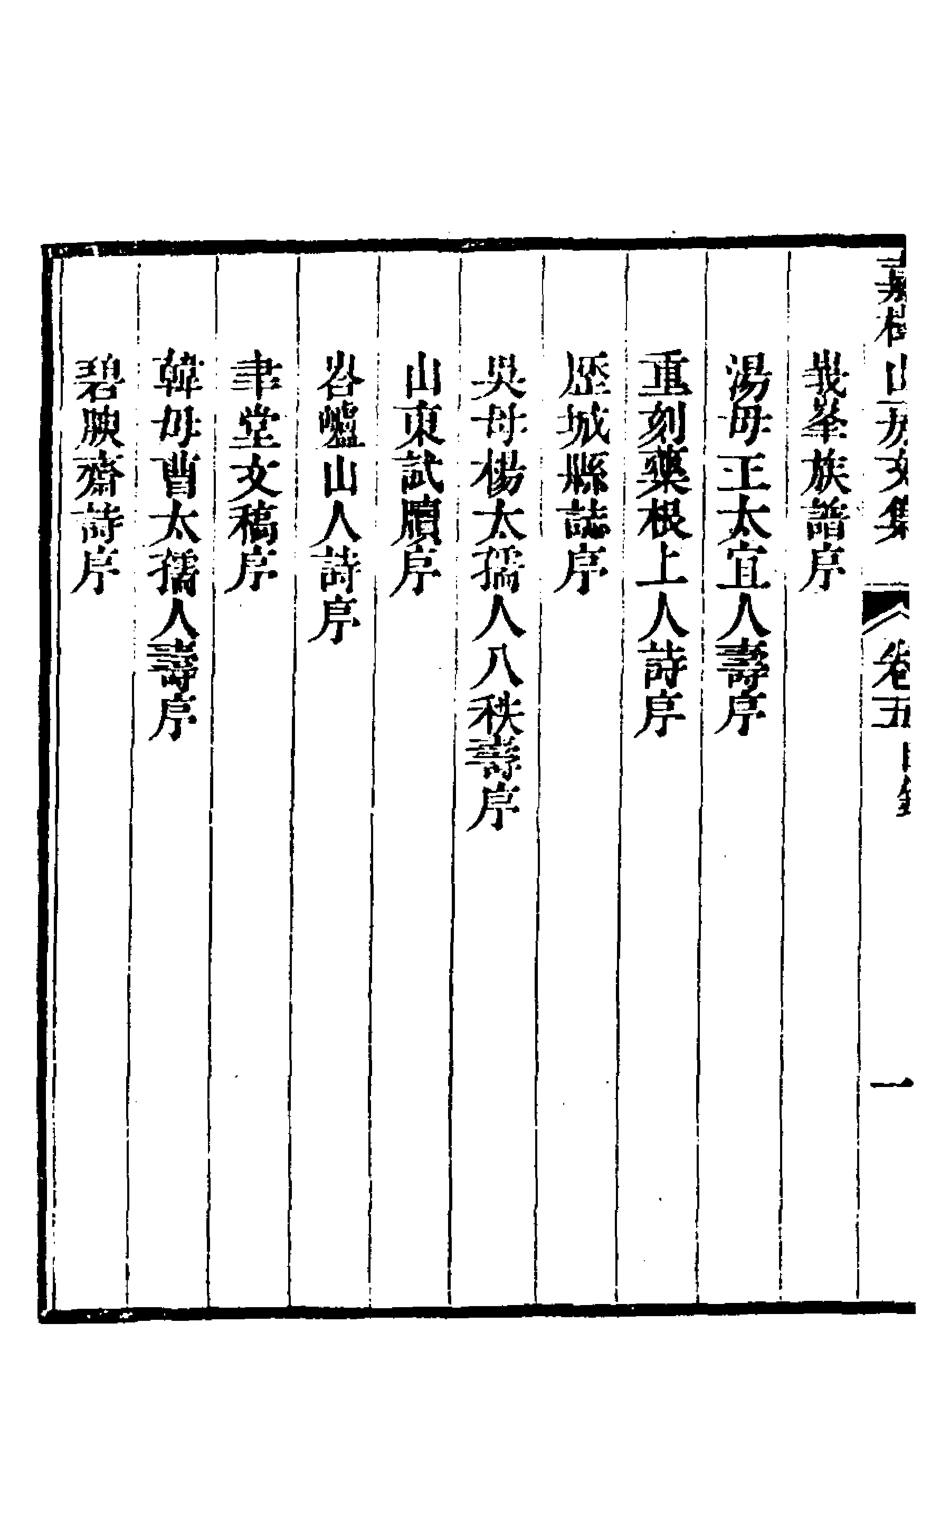 嘉樹山房文集 卷五 目錄 一
峩峯族譜序
湯母王太宜人壽序
重刻藥根上人詩序
歷城縣誌序
吳母楊太孺人八秩壽序
山東試牘序
山人詩序
聿堂文稿序
韓母曹太孺人壽序
碧腴齋詩序